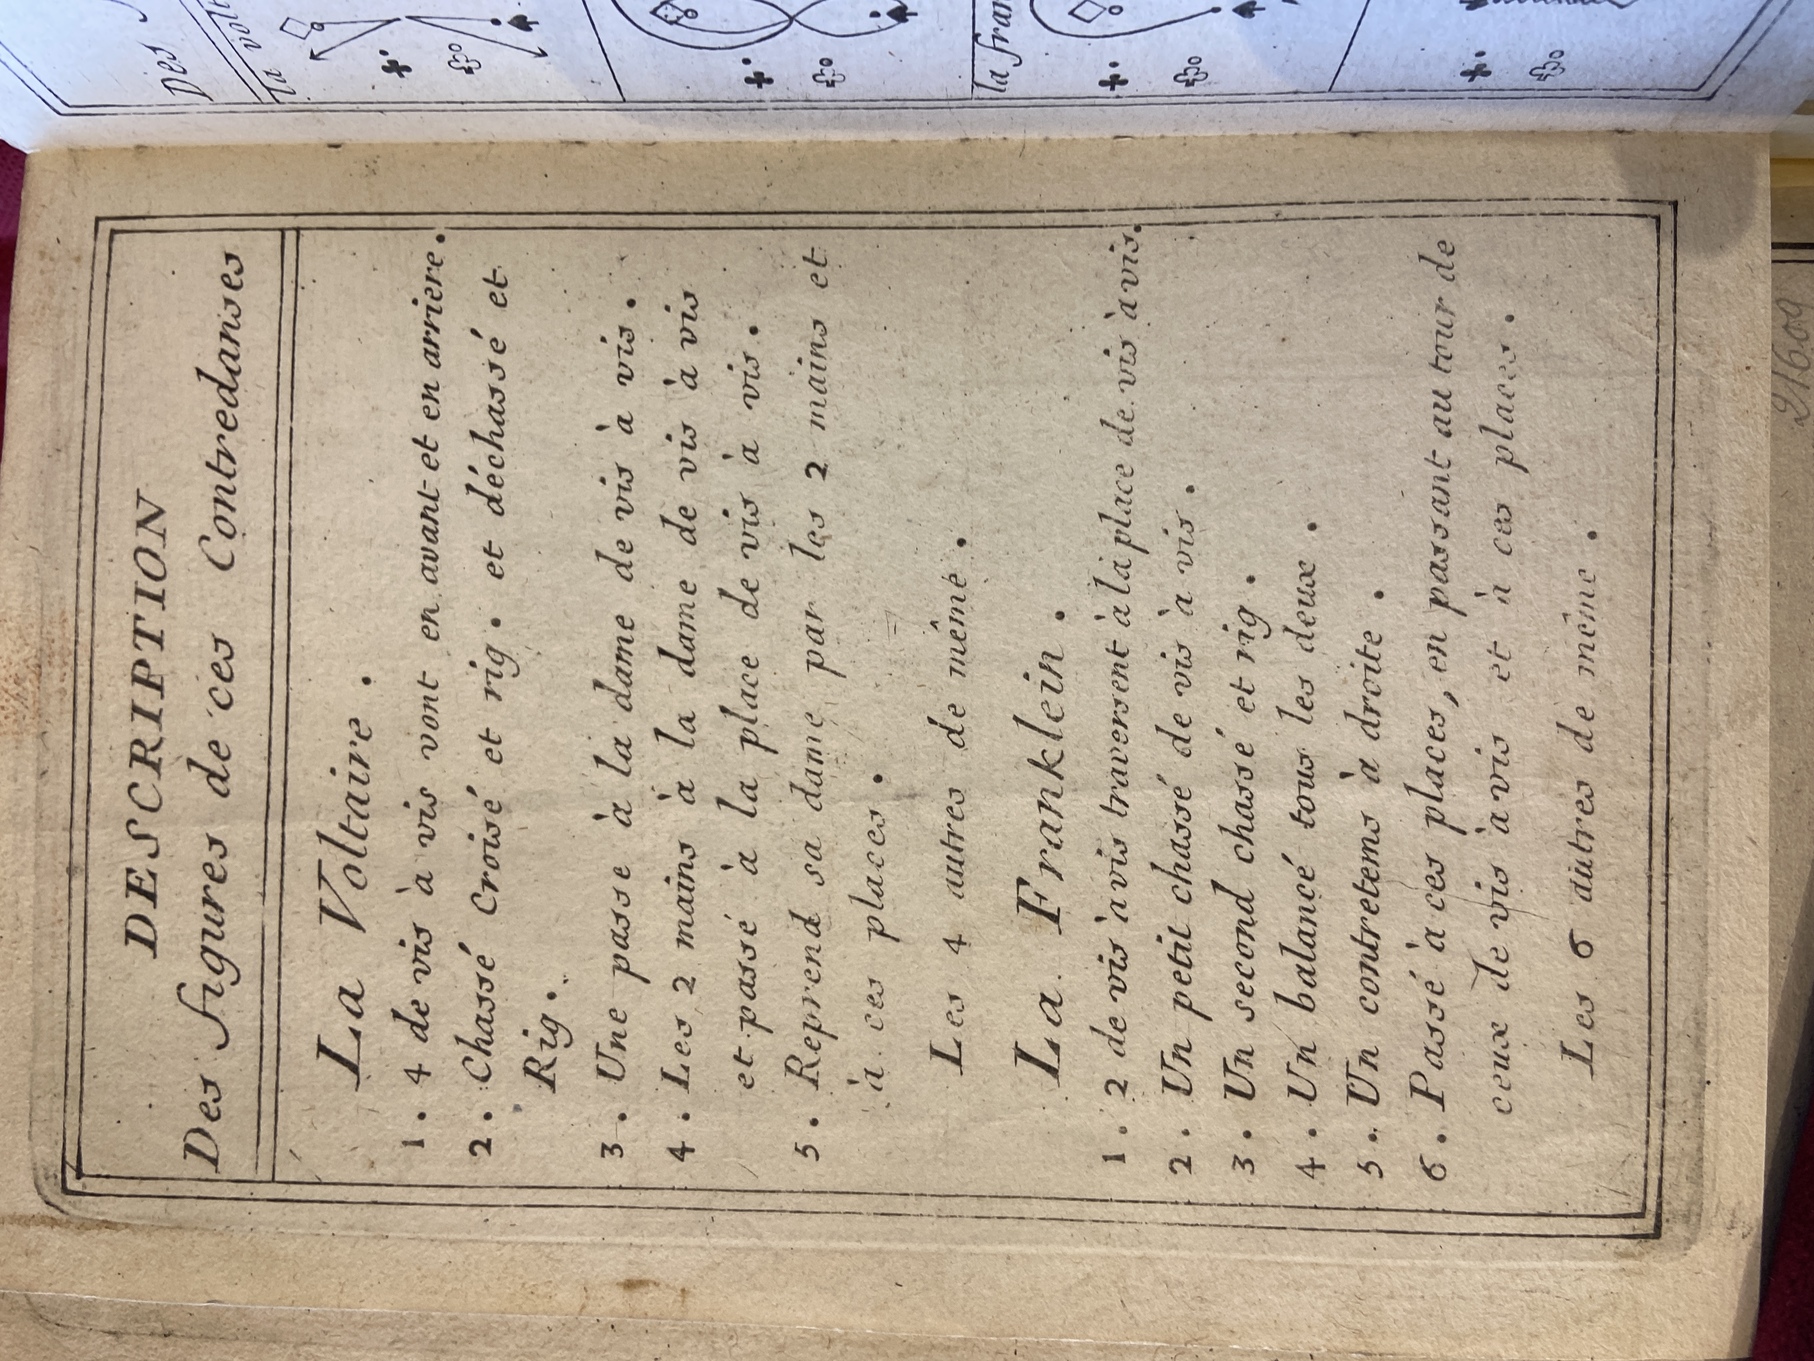 DESCRIPTION
Des figures de ces Contredanses
La Voltaire.
1. 4 de vis à vis vont en avant et en arriere.
2. Chassé Croisé et rig. et déchassé et
Rig.
3. Une passe à la dame de vis à vis.
4. Les 2 mains à la dame de vis à vis
et passé à la place de vis à vis.
5. Reprend sa dame par les 2 mains et
à ces places.
Les 4 autres de même.
La Franklein.
1. 2 de vis à vis traversent à la place de vis à vis.
2. Un petit chassé de vis à vis.
3. Un second chassé et rig.
4. Un balancé tous les deux.
5. Un contretems à droite.
6. Passé à ces places, en passant au tour de
ceux de vis à vis et à ces places.
Les 6 autres de même.
Des
la volt
la fran
21609